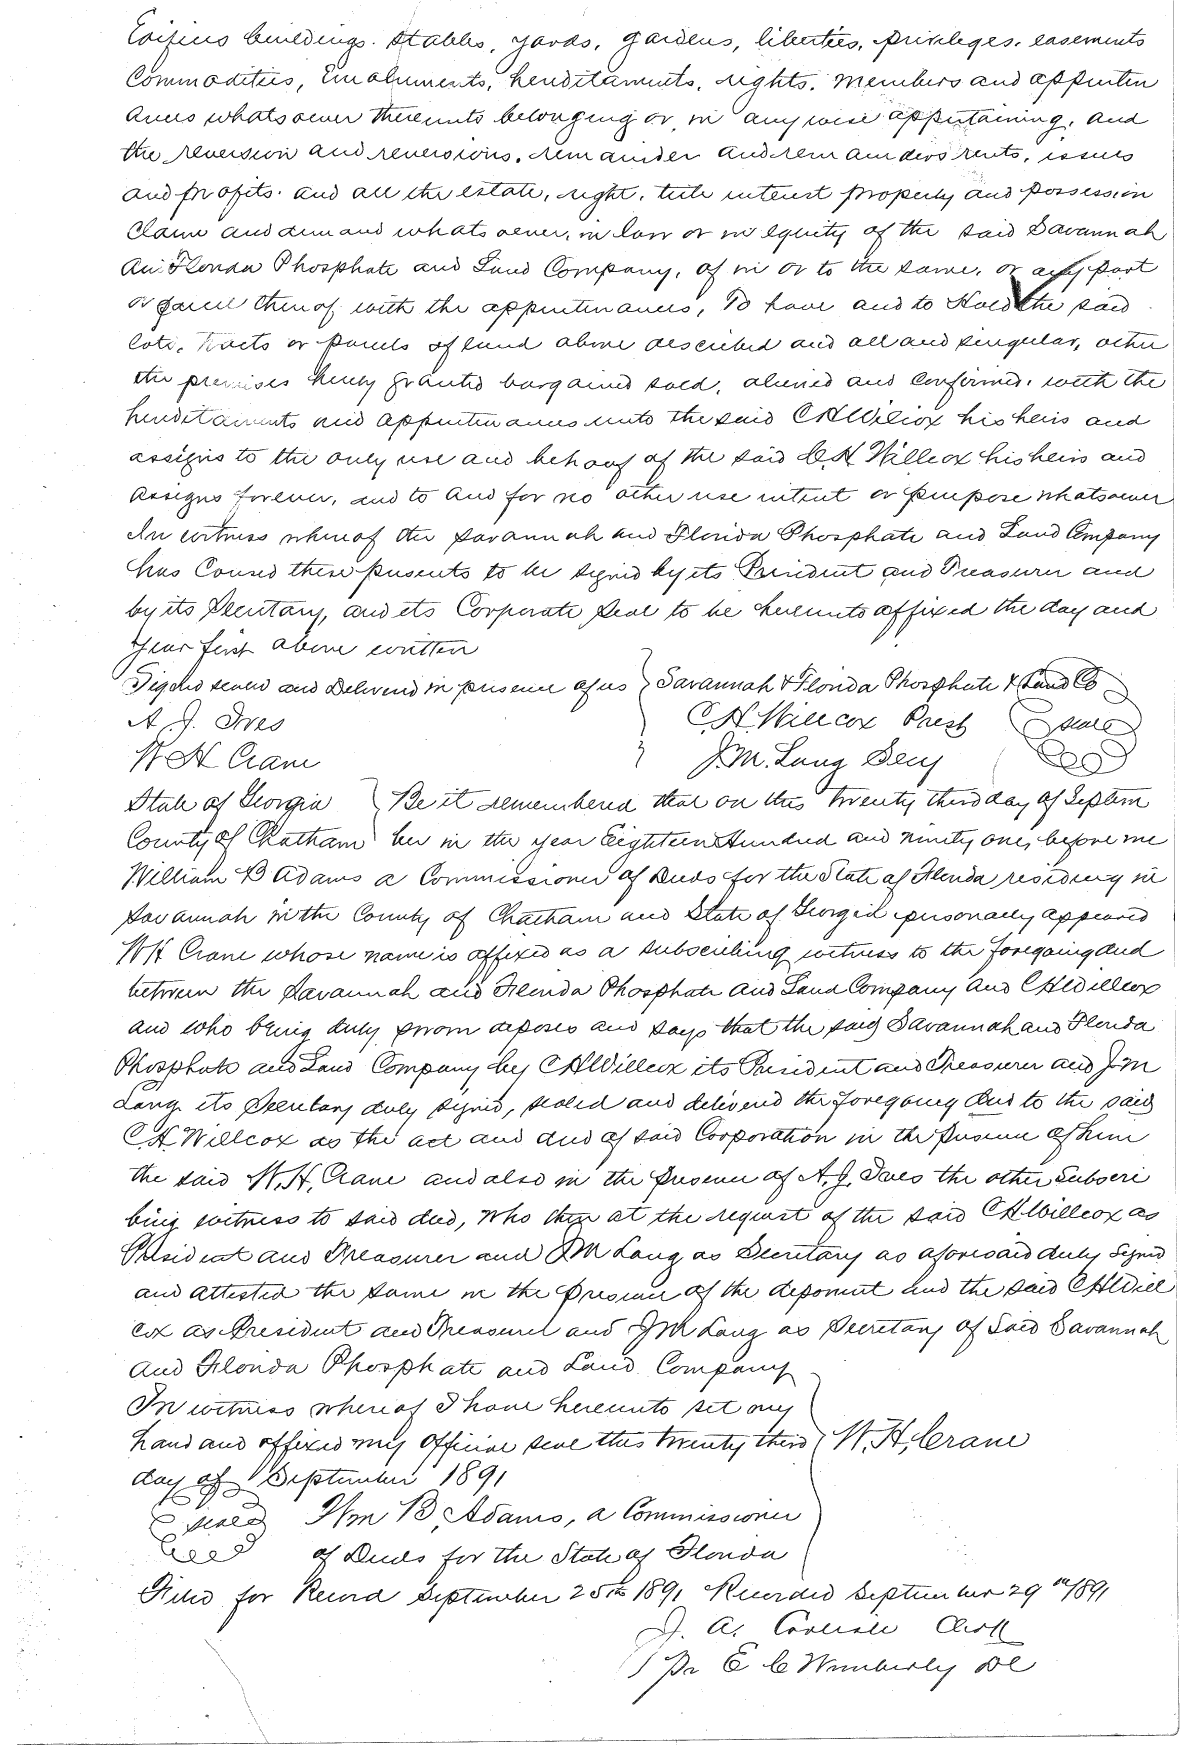 Edifices buildings. stables, yards, gardens, liberties, privileges. easements
Commodities, Emoluments, hereditaments, rights. members and appurten
ances whatsoever thereunto belonging or in any wise appertaining, and
the reversion and reversions, remainder and remainders rents, issues
and profits. and all the estate, right, title interest property and possession
Claim and demand whatsoever, in law or in equity of the said Savannah
An Florida Phosphate and Land Company, of in or to the same, or any part
or parcel thereof with the appurtenances, To have and to Hold the said
lots, tracts or parcels of land above described and all and singular, other
the premises hereby granted bargained sold, aliened and confirmed. with the
hereditaments and appurtenances unto the said C H Wilcox his heirs and
assigns to the only use and behoof of the said C. H Willcox his heirs and
assigns forever, and to and for no other use intent or purpose whatsoever
In witness whereof the Savannah and Florida Phosphate and Land Company
has Caused these presents to be signed by its President and Treasurer and
by its Secretary, and its Corporate Seal to be hereunto affixed the day and
year first above written
Signed sealed and Delivered in presence of us } Savannah & Florida Phosphate & Land Co
A. J. Ives C. H. Willcox Prest seal
W H Crane J. M. Lang Secy
State of Georgia } Be it remembered that on this twenty third day of Septem
County of Chatham } ber in the year Eighteen Hundred and ninety one, before me
William B Adams a Commissioner of Deeds for the State of Florida residing in
Savannah in the County of Chatham and State of Georgia personally appeared
W H Crane whose name is affixed as a subscribing witness to the foregoing deed
between the Savannah and Florida Phosphate and Land Company and C H Willcox
and who being duly sworn deposes and says that the said Savannah and Florida
Phosphate and Land Company by C H Willcox its President and Treasurer and J M
Lang its Secretary duly signed, sealed and delivered the foregoing Deed to the said
C H. Willcox as the act and deed of said Corporation in the presence of him
the said W. H. Crane and also in the presence of A. J. Ives the other Subscri
bing witness to said deed, who then at the request of the said C H Willcox as
President and Treasurer and J M Lang as Secretary as aforesaid duly signed
and attested the same in the presence of the deponent and the said C H Will
cox as President and Treasurer and J M Lang as Secretary of Said Savannah
and Florida Phosphate and Land Company
In witness whereof I have hereunto set my
hand and affixed my official seal this twenty third } W. H. Crane
day of September 1891
seal Wm B. Adams, a Commissioner
of Deeds for the State of Florida
Filed for Record September 25th 1891 Recorded September 29th 1891
J. A. Carlisle Clerk
Pr E C Wimberly DC